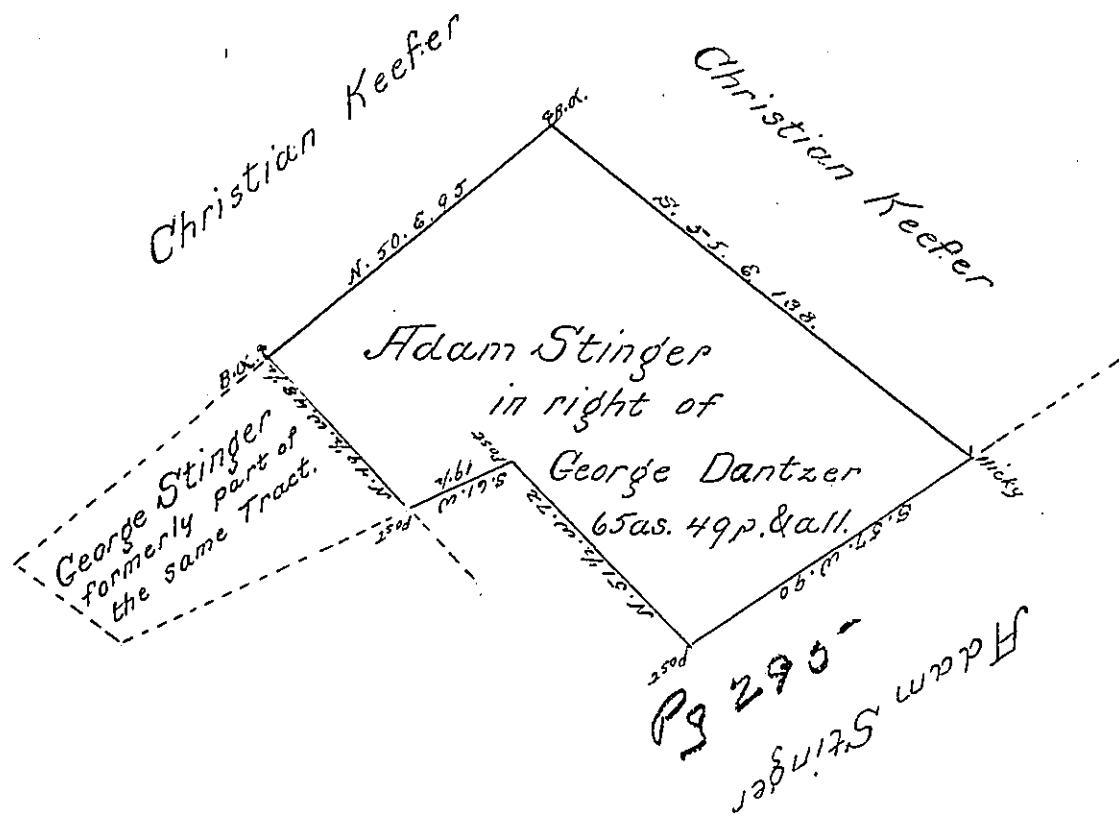 Christian Keefer
Christian Keefer
B.O.
N. 50. E. 95
S. 55. E. 138.
B.O.
N. 49 1/2. W. 48 1/2
Adam Stinger
in right of
George Dantzer
65as. 49p. & all.
George Stinger
formerly part of
the same Tract.
Post
S. 61. W
19 1/2
Post
N. 51 1/2. W. 72
Post
S. 57. W. 90
Hicky
Pg 295
Adam Stinger